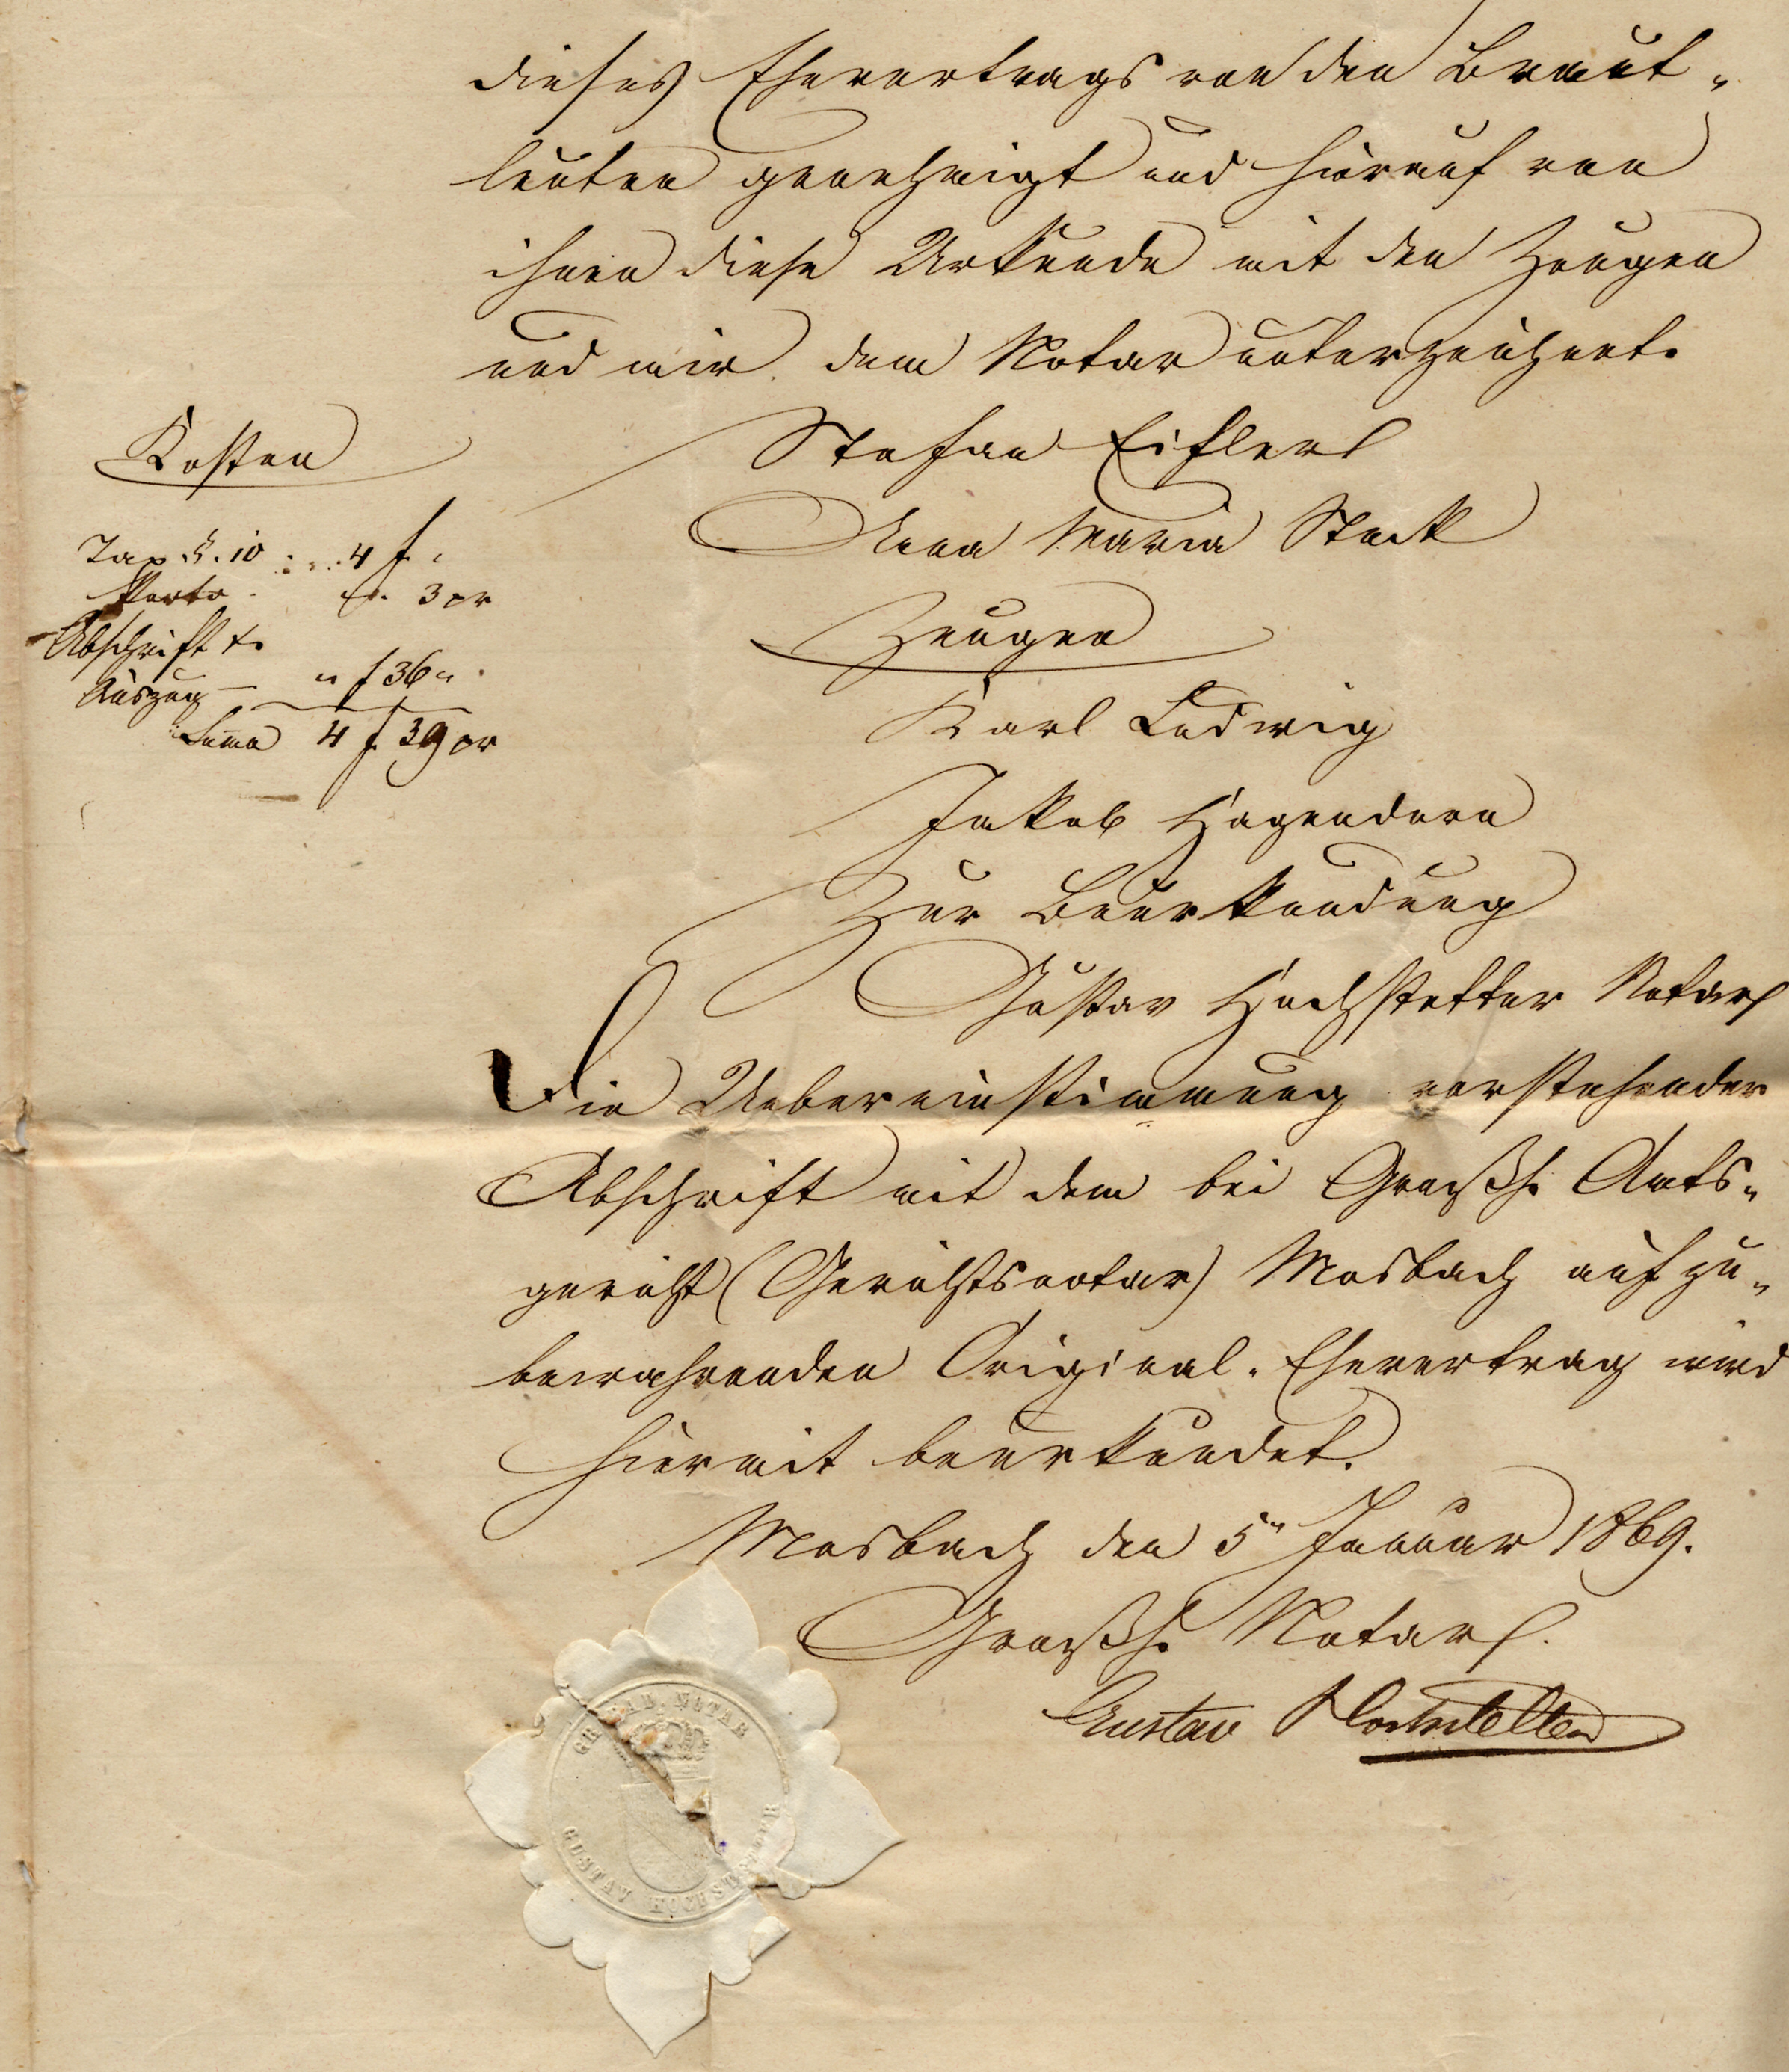 dieses Ehevertrags von den Braut-
leuten genehmigt und hierauf von
ihnen diese Urkunde mit den Zeugen
und mir dem Notar unterzeichnet.
Stefan
Anna Maria Stark
Zeugen
Karl Ludwig
Jakob Hagendorn
Zur Beurkundung
Gustav Hochstetter Notar
Die Uebereinstimmung vorstehender
Abschrift mit dem bei Grosshh. Amts-
gericht (Gerichtsnotar) Mosbach aufzu-
bewahrenden Original-Ehevertrag wird
hiermit beurkundet.
Mosbach den 5n Januar 1869.
Grosshh. Notar.
Gustav Hochstetter
Kosten
Tax §. 10 4 f
Porto 3 xr
Abschrift
Auszug — " f 36 "
Summa 4 f 39 xr
GR. BAD. NOTAR
GUSTAV HOCHSTETTER